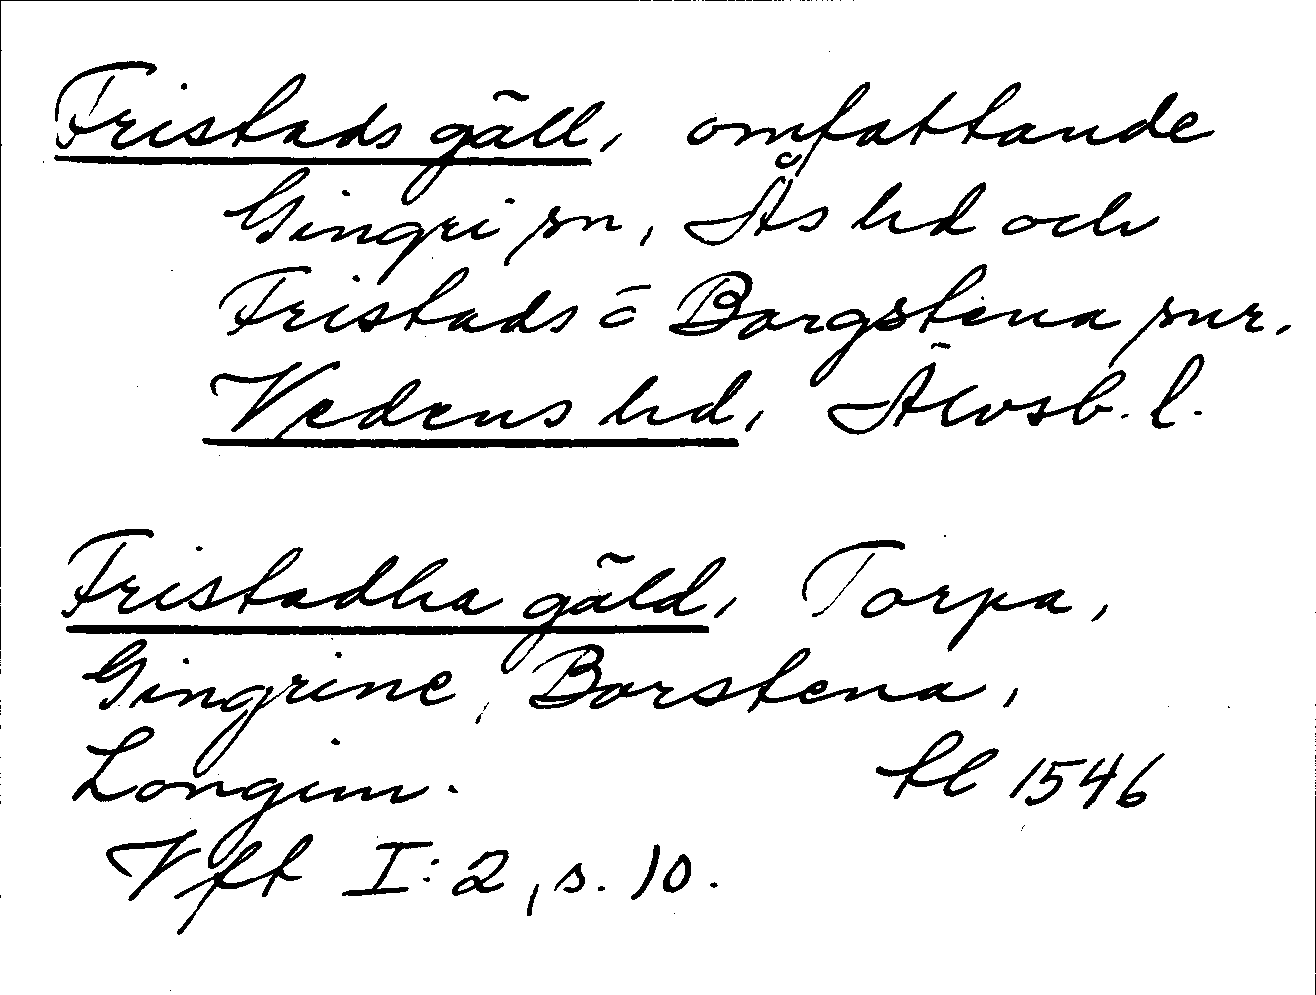 Fristads gäll, omfattande
Gingri sn, Ås hd och
Fristads o Borgstena snr.
Vedens hd, Älvsb. l.
Fristadha gäld, Torpa,
Gingrine, Borstena,
Longim.
tl 1546
Vft I:2, s. 10.